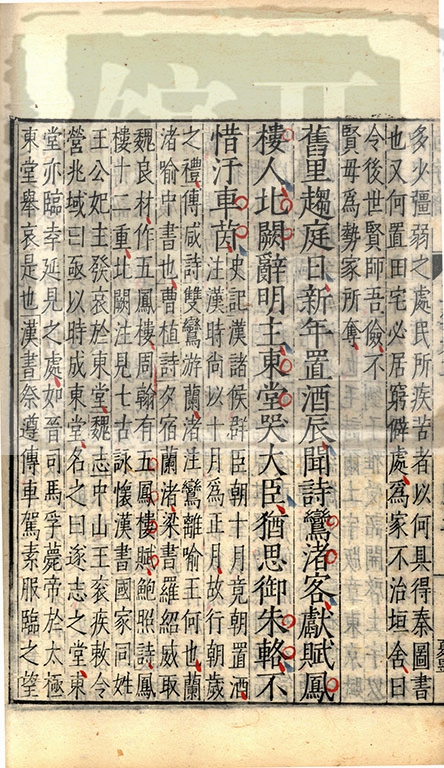 多少彊弱之處民所疾苦者以何具得秦圖書
也又何置田宅必居窮僻處爲家不治垣舍曰
令後世賢師吾儉不
賢毋爲勢家所奪
舊里趨庭日新年置酒辰聞詩鸞渚客獻賦鳳
樓人北闕辭明主東堂哭大臣猶思御朱輅不
惜汙車茵
史記漢諸侯群臣朝十月竟朝置酒
注漢時尚以十月爲正月故行朝歲
之禮傳咸詩雙鸞游蘭渚注鸞離喻王何也蘭
渚喻中書也曹植詩夕宿蘭渚梁書羅紹威取
魏良材作五鳳樓周翰有五鳳樓賦鮑照詩鳳
樓十二重北闕注見七古詠懷漢書國家同姓
王公妃主發哀於東堂魏志中山王袞疾敕令
營兆域曰亟以時成東堂名之曰遂志之堂東
堂亦臨幸延見之處如晉司馬孚薨帝於太極
東堂舉哀是也漢書祭遵傳車駕素服臨之望